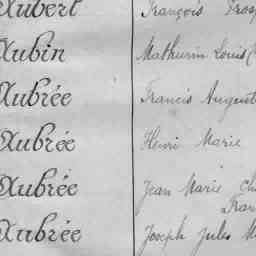 Aubert François
Aubin Mathurin Louis
Aubrée Francis August
Aubrée Henri Marie
Aubrée Jean Marie
Aubrée Joseph Jules